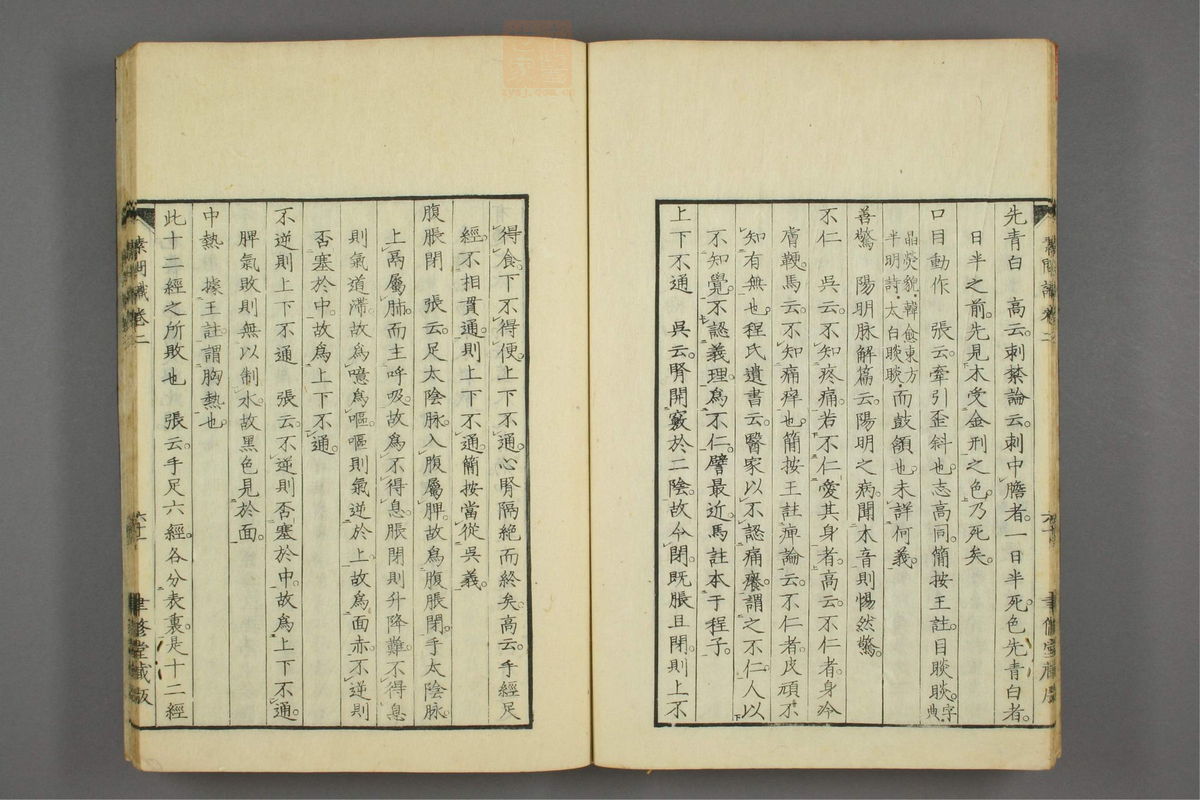 先青白　高云。刺禁論云。刺中膽者。一日半死。色先青白者。
日半之前。先見木受金刑之色。乃死矣。
口目動作　張云。牽引歪斜也。志高同。簡按王註。目睒睒。字典
晶熒貌。韓愈東方
半明詩。太白睒睒。而鼓頷也。未詳何義。
善驚　陽明脉解篇云。陽明之病。聞木音則惕然驚。
不仁　吳云。不知疼痛。若不仁愛其身者。高云。不仁者。身冷
膚鞕。馬云。不知痛痺也。簡按王註痺論云。不仁者。皮頑不
知有無也。程氏遺書云。醫家以不認痛癢。謂之不仁。人以
不知覺。不認義理。爲不仁。譬最近。馬註本于程子。
上下不通　吳云。腎開竅於二陰。故今閉。既脹且閉。則上不
得食。下不得便。上下不通。心腎隔絶而終矣。高云。手經足
經。不相貫通。則上下不通。簡按當從吳義。
腹脹閉　張云。足太陰脉。入腹屬脾。故爲腹脹閉。手太陰脉。
上鬲屬肺。而主呼吸。故爲不得息。脹閉則升降難。不得息
則氣道滯。故爲噫爲嘔。嘔則氣逆於上。故爲面赤。不逆則
否塞於中。故爲上下不通。
不逆則上下不通　張云。不逆則否塞於中。故爲上下不通。
脾氣敗則無以制水。故黑色見於面。
中熱　據王註。謂胸熱也。
此十二經之所敗也　張云。手足六經。各分表裏。是十二經
素問識卷二
聿修堂藏版